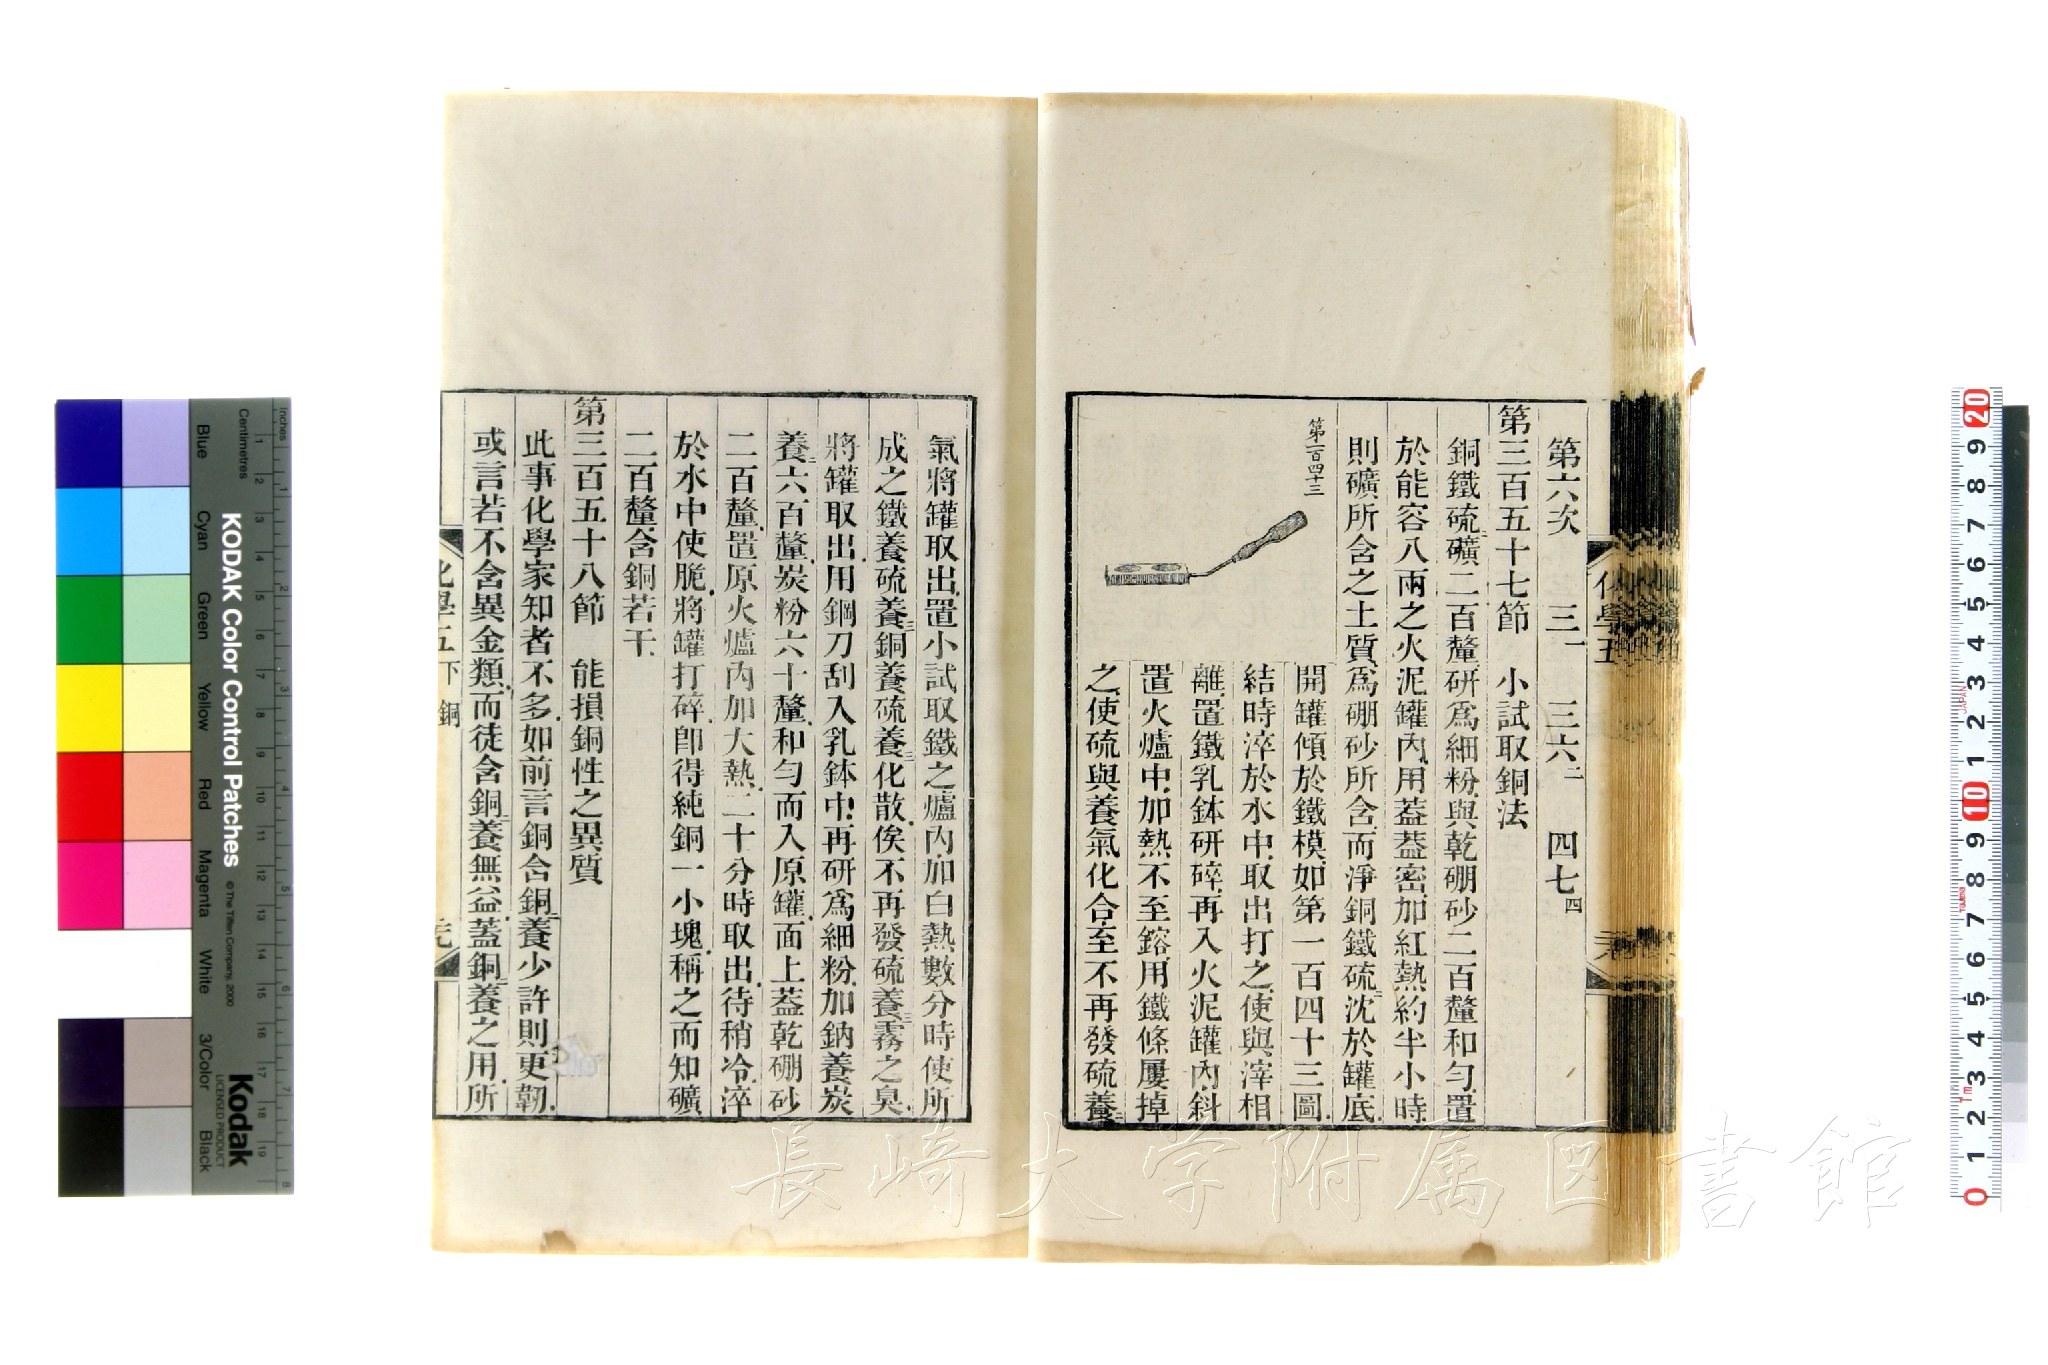 第六次　三一　三六二　四七四
第三百五十七節　小試取銅法
銅鐵硫礦二百釐研爲細粉與乾硼砂二百釐和勻置
於能容八兩之火泥罐內用蓋蓋密加紅熱約半小時
則礦所含之土質爲硼砂所含而淨銅鐵硫沈於罐底
第一百四十三
開罐傾於鐵模如第一百四十三圖
結時淬於水中取出打之使與滓相
離置鐵乳鉢研碎再入火泥罐內斜
置火爐中加熱不至鎔用鐵條屢掉
之使硫與養氣化合至不再發硫養二
氣將罐取出置小試取鐵之爐內加白熱數分時使所
成之鐵養硫養三銅養硫養三化散俟不再發硫養三霧之臭
將罐取出用鋼刀刮入乳鉢中再研爲細粉加鈉養炭
養二六百釐炭粉六十釐和勻而入原罐面上蓋乾硼砂
二百釐置原火爐內加大熱二十分時取出待稍冷淬
於水中使脆將罐打碎卽得純銅一小塊稱之而知礦
二百釐含銅若干
第三百五十八節　能損銅性之異質
此事化學家知者不多如前言銅含銅二養少許則更韌
或言若不含異金類而徒含銅二養無益蓋銅二養之用所
化學五
化學五下　銅
KODAK Color Control Patches
© The Tiffen Company, 2000
Kodak
LICENSED PRODUCT
Inches
Centimetres
Blue
Cyan
Green
Yellow
Red
Magenta
White
3/Color
Black
1 2 3 4 5 6 7 8 9 10 11 12 13 14 15 16 17 18 19
20 9 8 7 6 5 4 3 2 1 10 9 8 7 6 5 4 3 2 1 0
JAPAN
長崎大学附属図書館